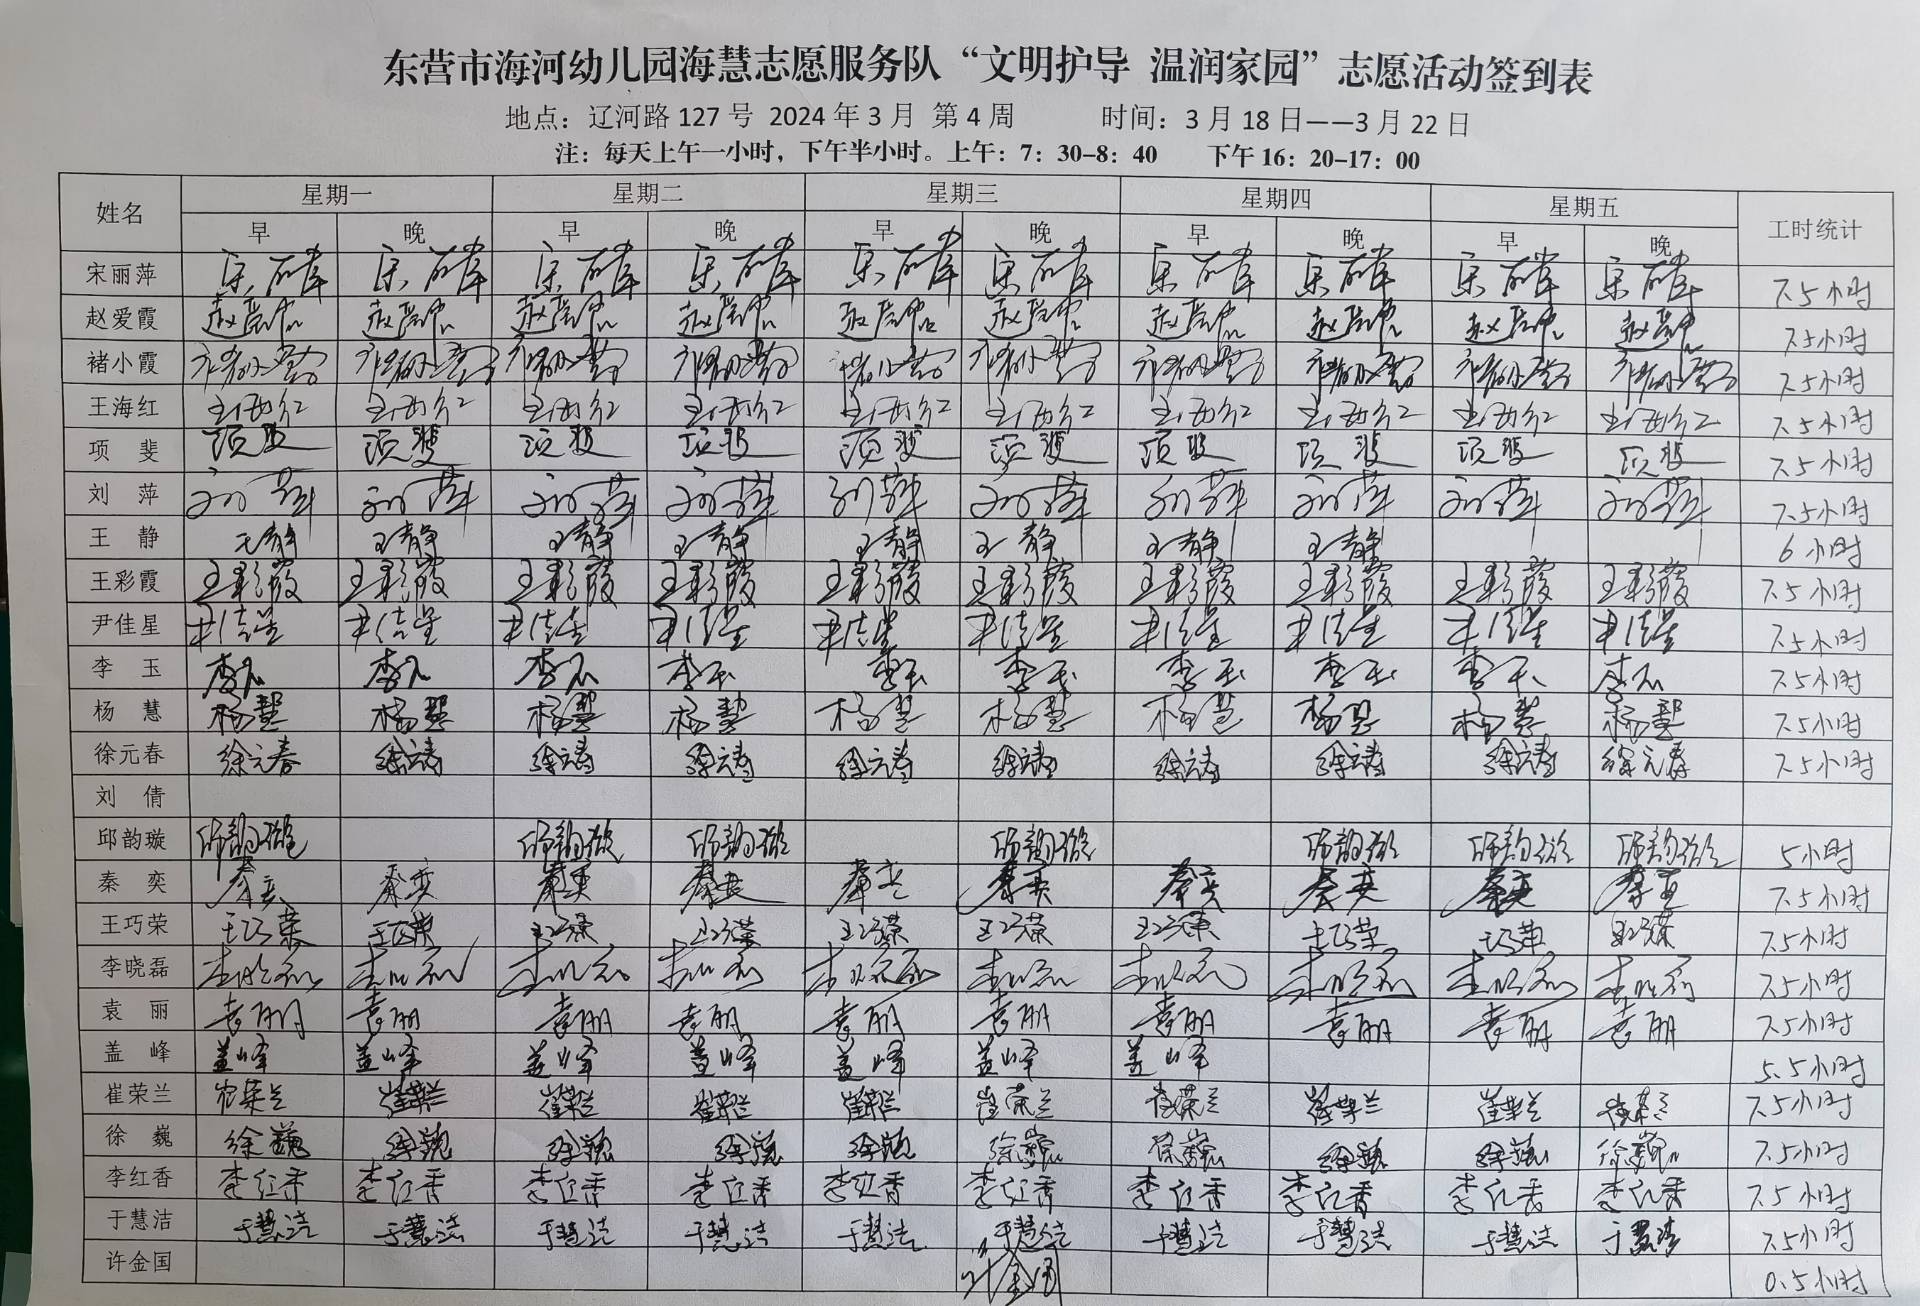 东营市海河幼儿园海慧志愿服务队“文明护导 温润家园”志愿活动签到表
地点：辽河路 127 号 2024 年 3 月 第 4 周 时间：3 月 18 日——3 月 22 日
注：每天上午一小时，下午半小时。上午：7：30-8：40 下午 16：20-17：00
姓名 星期一 星期二 星期三 星期四 星期五 工时统计
早 晚 早 晚 早 晚 早 晚 早 晚
宋丽萍 宋丽萍 宋丽萍 宋丽萍 宋丽萍 宋丽萍 宋丽萍 宋丽萍 宋丽萍 宋丽萍 宋丽萍 7.5小时
赵爱霞 赵爱霞 赵爱霞 赵爱霞 赵爱霞 赵爱霞 赵爱霞 赵爱霞 赵爱霞 赵爱霞 赵爱霞 7.5小时
褚小霞 褚小霞 褚小霞 褚小霞 褚小霞 褚小霞 褚小霞 褚小霞 褚小霞 褚小霞 褚小霞 7.5小时
王海红 王海红 王海红 王海红 王海红 王海红 王海红 王海红 王海红 王海红 王海红 7.5小时
项 斐 项斐 项斐 项斐 项斐 项斐 项斐 项斐 项斐 项斐 项斐 7.5小时
刘 萍 刘萍 刘萍 刘萍 刘萍 刘萍 刘萍 刘萍 刘萍 刘萍 刘萍 7.5小时
王 静 王静 王静 王静 王静 王静 王静 王静 王静 6小时
王彩霞 王彩霞 王彩霞 王彩霞 王彩霞 王彩霞 王彩霞 王彩霞 王彩霞 王彩霞 王彩霞 7.5小时
尹佳星 尹佳星 尹佳星 尹佳星 尹佳星 尹佳星 尹佳星 尹佳星 尹佳星 尹佳星 尹佳星 7.5小时
李 玉 李玉 李玉 李玉 李玉 李玉 李玉 李玉 李玉 李玉 李玉 7.5小时
杨 慧 杨慧 杨慧 杨慧 杨慧 杨慧 杨慧 杨慧 杨慧 杨慧 杨慧 7.5小时
徐元春 徐元春 徐元春 徐元春 徐元春 徐元春 徐元春 徐元春 徐元春 徐元春 徐元春 7.5小时
刘 倩
邱韵璇 邱韵璇 邱韵璇 邱韵璇 邱韵璇 邱韵璇 邱韵璇 邱韵璇 5小时
秦 奕 秦奕 秦奕 秦奕 秦奕 秦奕 秦奕 秦奕 秦奕 秦奕 秦奕 7.5小时
王巧荣 王巧荣 王巧荣 王巧荣 王巧荣 王巧荣 王巧荣 王巧荣 王巧荣 王巧荣 王巧荣 7.5小时
李晓磊 李晓磊 李晓磊 李晓磊 李晓磊 李晓磊 李晓磊 李晓磊 李晓磊 李晓磊 李晓磊 7.5小时
袁 丽 袁丽 袁丽 袁丽 袁丽 袁丽 袁丽 袁丽 袁丽 袁丽 袁丽 7.5小时
盖 峰 盖峰 盖峰 盖峰 盖峰 盖峰 盖峰 盖峰 5.5小时
崔荣兰 崔荣兰 崔荣兰 崔荣兰 崔荣兰 崔荣兰 崔荣兰 崔荣兰 崔荣兰 崔荣兰 崔荣兰 7.5小时
徐 巍 徐巍 徐巍 徐巍 徐巍 徐巍 徐巍 徐巍 徐巍 徐巍 徐巍 7.5小时
李红香 李红香 李红香 李红香 李红香 李红香 李红香 李红香 李红香 李红香 李红香 7.5小时
于慧洁 于慧洁 于慧洁 于慧洁 于慧洁 于慧洁 于慧洁 于慧洁 于慧洁 于慧洁 于慧洁 7.5小时
许金国 许金国 0.5小时